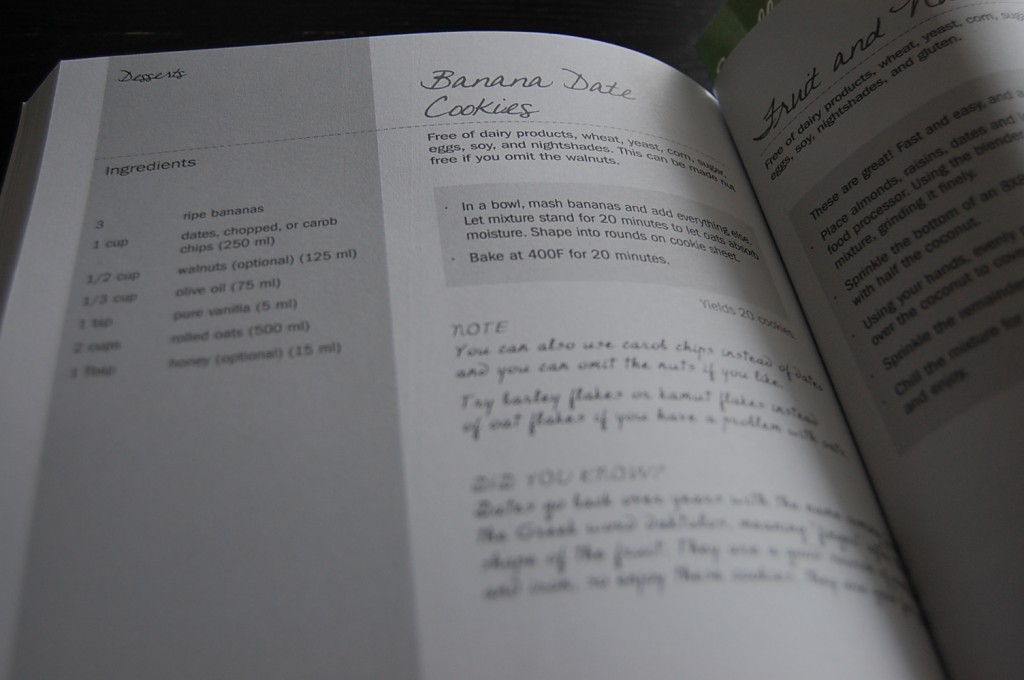 Desserts
Ingredients
3 ripe bananas
1 cup dates, chopped, or carob
chips (250 ml)
1/2 cup walnuts (optional) (125 ml)
1/3 cup olive oil (75 ml)
1 tsp pure vanilla (5 ml)
2 cups rolled oats (500 ml)
1 Tbsp honey (optional) (15 ml)
Banana Date
Cookies
Free of dairy products, wheat, yeast, corn, sugar,
eggs, soy, and nightshades. This can be made nut
free if you omit the walnuts.
· In a bowl, mash bananas and add everything else.
Let mixture stand for 20 minutes to let oats absorb
moisture. Shape into rounds on cookie sheet.
· Bake at 400F for 20 minutes.
Yields 20 cookies
NOTE
You can also use carob chips instead of dates
and you can omit the nuts if you like.
Try barley flakes or kamut flakes instead
of oat flakes if you have a problem with oats.
DID YOU KNOW?
Dates go back over years with the name
the Greek word meaning
shape of the fruit. They are a
and so enjoy these cookies. They are
Fruit and
Free of dairy products, wheat, yeast, corn, sugar,
eggs, soy, nightshades, and gluten.
These are great! Fast and easy, and a
· Place almonds, raisins, dates and
food processor. Using the blender
mixture, grinding it finely.
· Sprinkle the bottom of an 8x8
with half the coconut.
· Using your hands, evenly
over the coconut to cover
· Sprinkle the remainder
· Chill the mixture for
and enjoy.